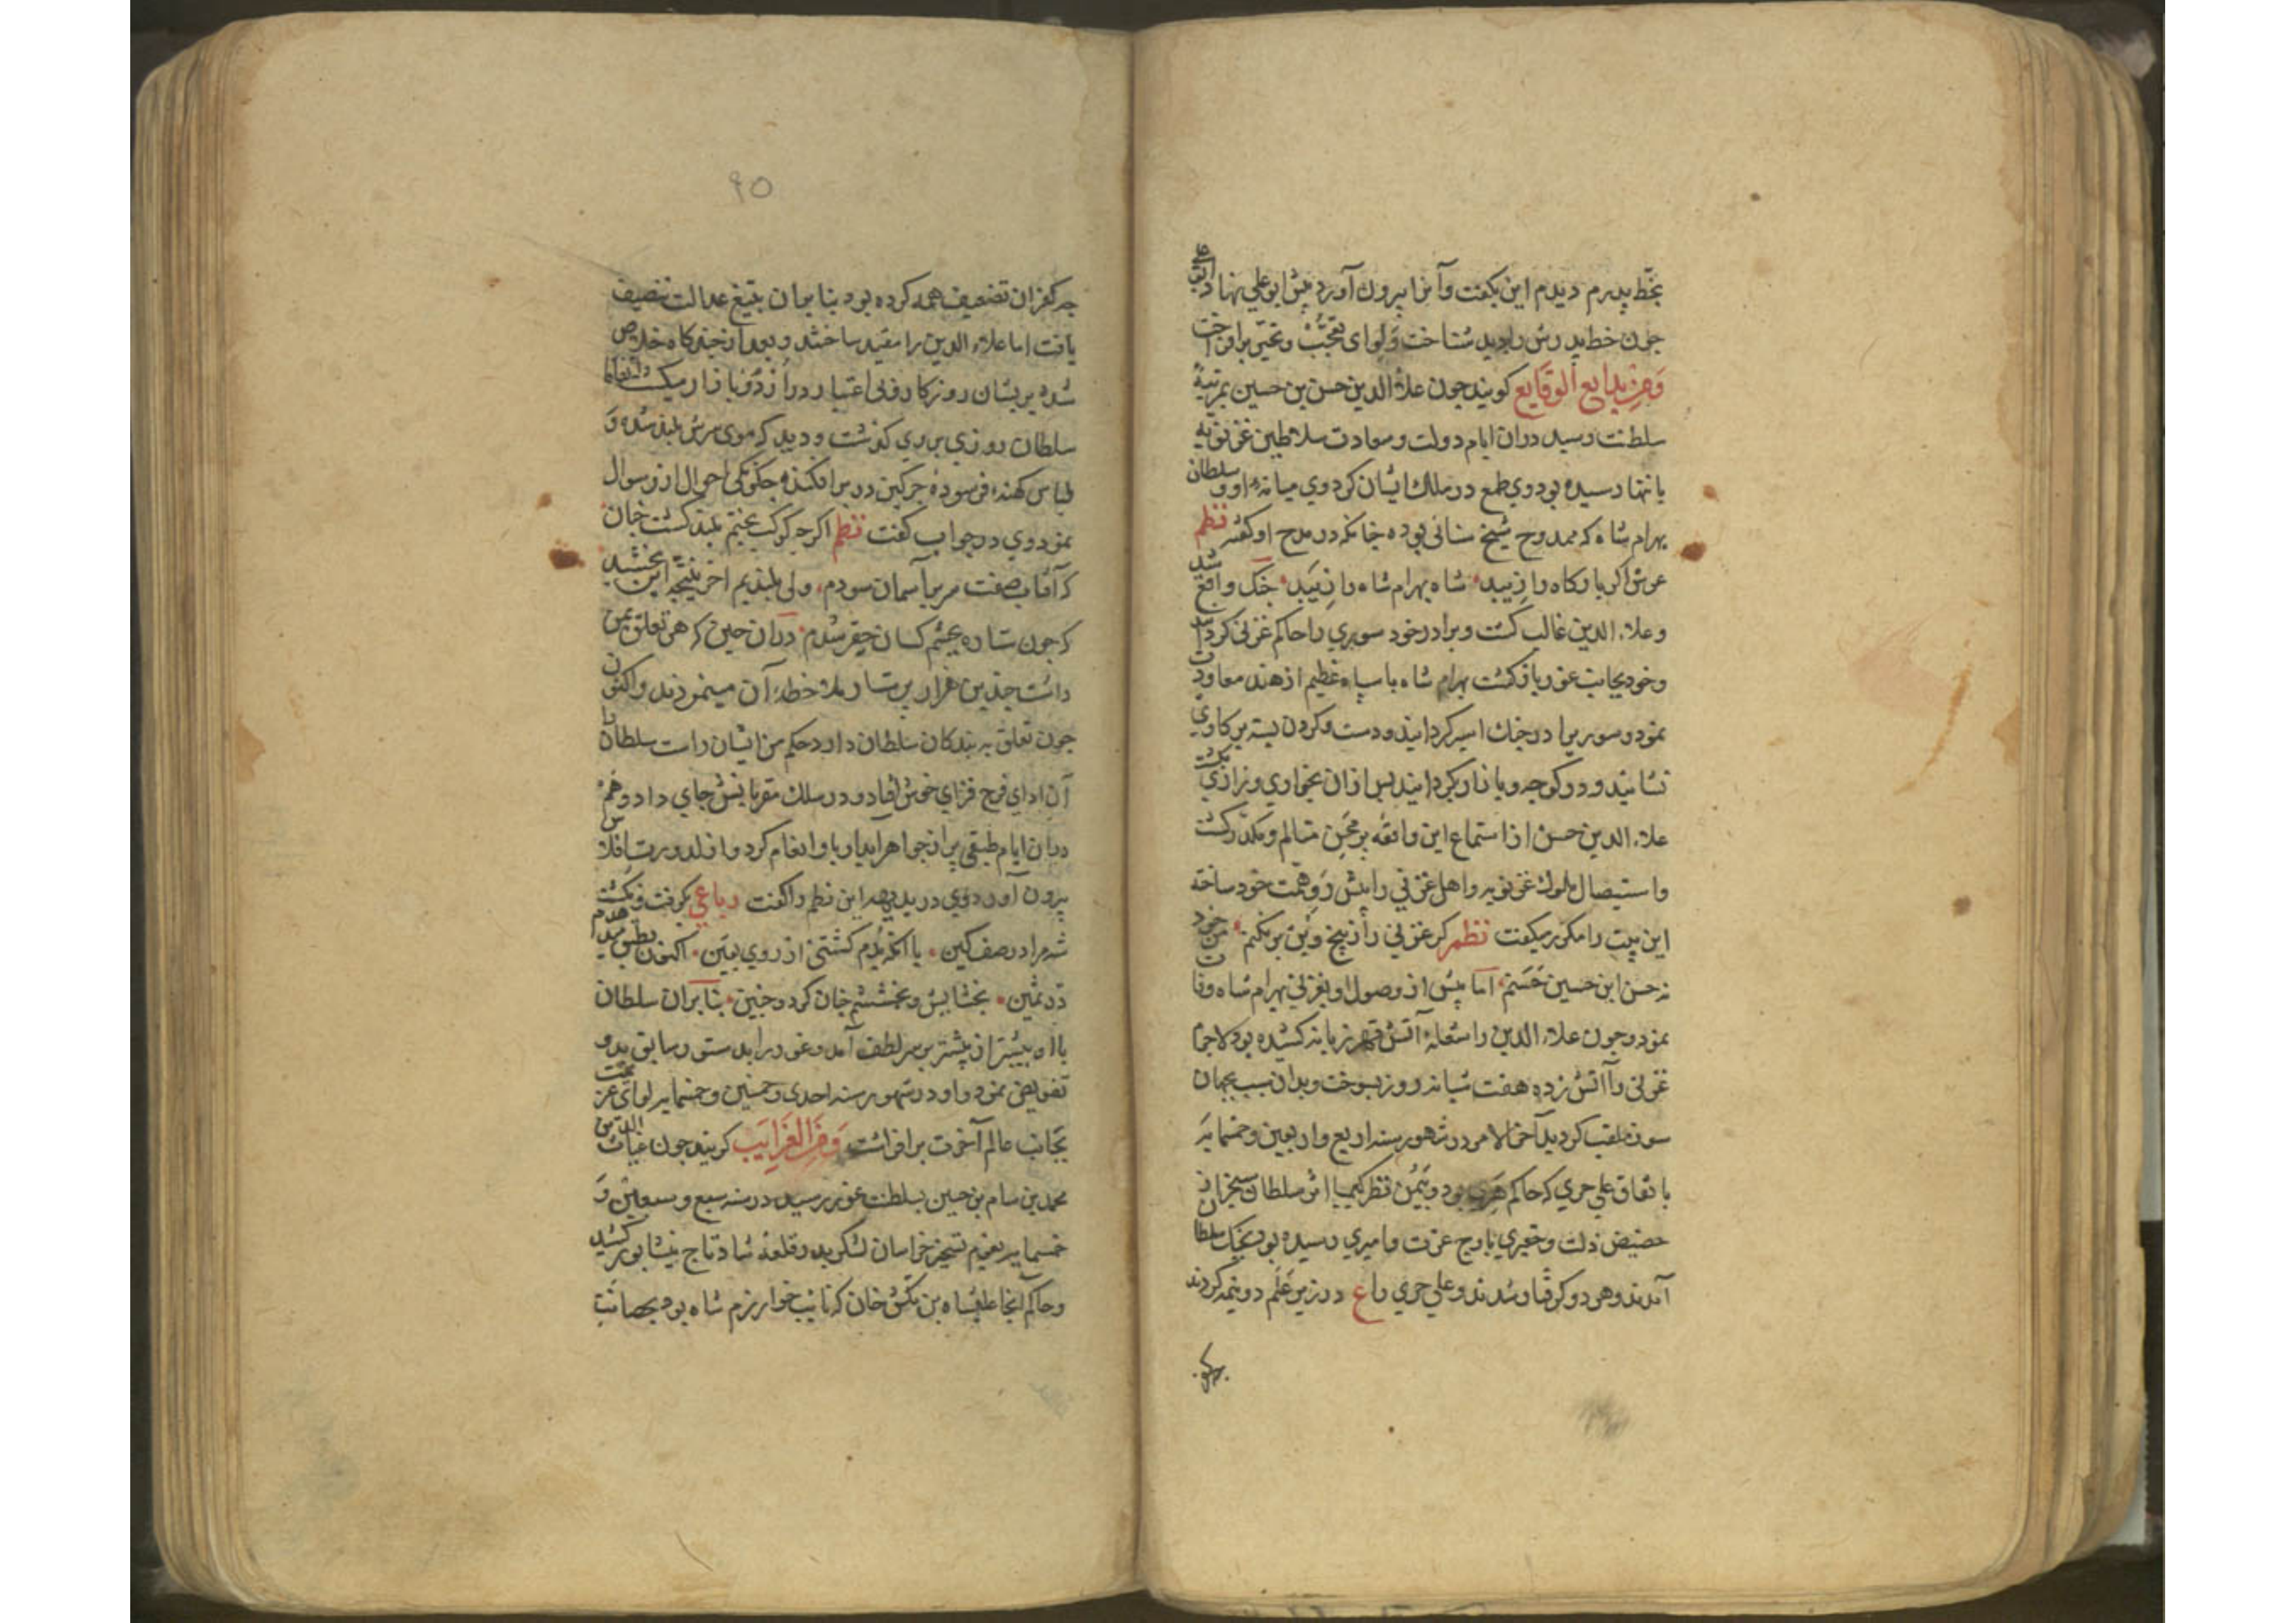 بخط پدرم دیدم این بکفت وآنرا بیرون آورد پیش ابوعلی نهاد ابوعلی
جون خط پدرش را بدید شناخت ولوای تعجب وتحیر برافراخت
ومن بدایع الوقایع کویند جون علاء الدین حسن بن حسین بمرتبهٔ
سلطنت رسید دران ایام دولت وسعادت سلاطین غزنویه
بانتها رسیده بود وی طمع در ملک ایشان کرد وی میانهٔ او و سلطان
بهرام شاه که ممدوح شیخ سنائی بوده جنانکه در مدح او کفته نظم
عرش اکر بارکاه را زیبد شاه بهرام شاه را زیبد جنک واقع شد
وعلاء الدین غالب کشت وبرادر خود سوری را حاکم غزنی کردانید
وخود بجانب غور بازکشت بهرام شاه با سپاه عظیم از هند معاودت
نمود وسوریرا در جنک اسیر کردانید ودست وکردن بسته بر کاوی
نشانید و در کوجه وبازار بکردانید بس ازان بخواری وزاری بکشت
علاء الدین حسن از استماع این واقعه برمحن متالم ومکدر کشت
واستیصال ملوک غزنویه واهل غزنی را پیش رو همت خود ساخته
این بیت را مکرر میکفت نظم کر غزنی را زبیخ وبن برنکنم من خود
نه حسن ابن حسین حسنم اما پیش از وصول او بغزنی بهرام شاه وفات
نمود وجون علاء الدین را شعلهٔ آتش قهر زبانه کشیده بود لاجرم
غزنی را آتش زده هفت شبانه روز بسوخت وبدان سبب بجهان
سوز ملقب کردید آخر الامر در شهور سنه اربع واربعین وخمسمایه
باتفاق علی جری که حاکم هری بود وبیمن نظر کیمیا اثر سلطان سنجر از
حضیض ذلت وحقیری باوج عزت وامیری رسیده بود بجنک سلطان
آمدند وهر دو کرفتار شدند وعلی جری را ع در زیر علم دو نیمه کردند
جه کفران تضعیف همه کرده بود بنا بران بتیغ عدالت تنصیف
یافت اما علاء الدین را مقید ساختند وبعد از جندکاه خلاص
شده پریشان روزکار وبی اعتبار در اردو بازار میکشت اتفاقا
سلطان روزی بر وی کذشت ودید که موی سرش بلند شده و
لباس کهنه فرسودهٔ جرکین در بر افکنده جکونکی احوال ازو سوال
نمود وی در جواب کفت نظم اکر جه کوکب بختم بلند کشت جنان
که آفتاب صفت سر بر آسمان سودم ولی بلندیم اخر نتیجه این بخشید
که جون ستاره بجشم کسان حقیر شدم دران حین که هر تعلق بمن
داشت جندین هزار پرستار ملاحظهٔ آن مینمودند واکنون
جون تعلق به بندکان سلطان دارد حکم من ایشان راست سلطان را
آن ادای فرح فزای خوش افتاد و در سلک مقربانش جای داد وهم
دران ایام طبقی پر از جواهر آبدار باو انعام کرد
بیرون آورد وی در بدیهه این نظم را کفت رباعی بکرفت ونکشت
شه مرا در صف کین با آنکه بدم کشتنی از روی یقین اکنون بطبق میدهدم
در ثمین بخشایش وبخششم جنان کرد وجنین بنابران سلطان
با او بیشتر از پیشتر بر سر لطف آمد وغور را بدستور سابق بدو
تفویض نمود واو در شهور سنه احدی وخمسین وخمسمایه لوای عزیمت
بجانب عالم آخرت برافراشت ومن الغرایب کویند جون غیاث الدین
محمد بن سام بن حسین بسلطنت غور رسید در سنه سبع وسبعین و
خمسمایه بعزم تسخیر خراسان لشکر بدر قلعهٔ شادتاج نیشابور کشید
وحاکم آنجا علیشاه بن تکش خان که نایب خوارزم شاه بود بحصانت